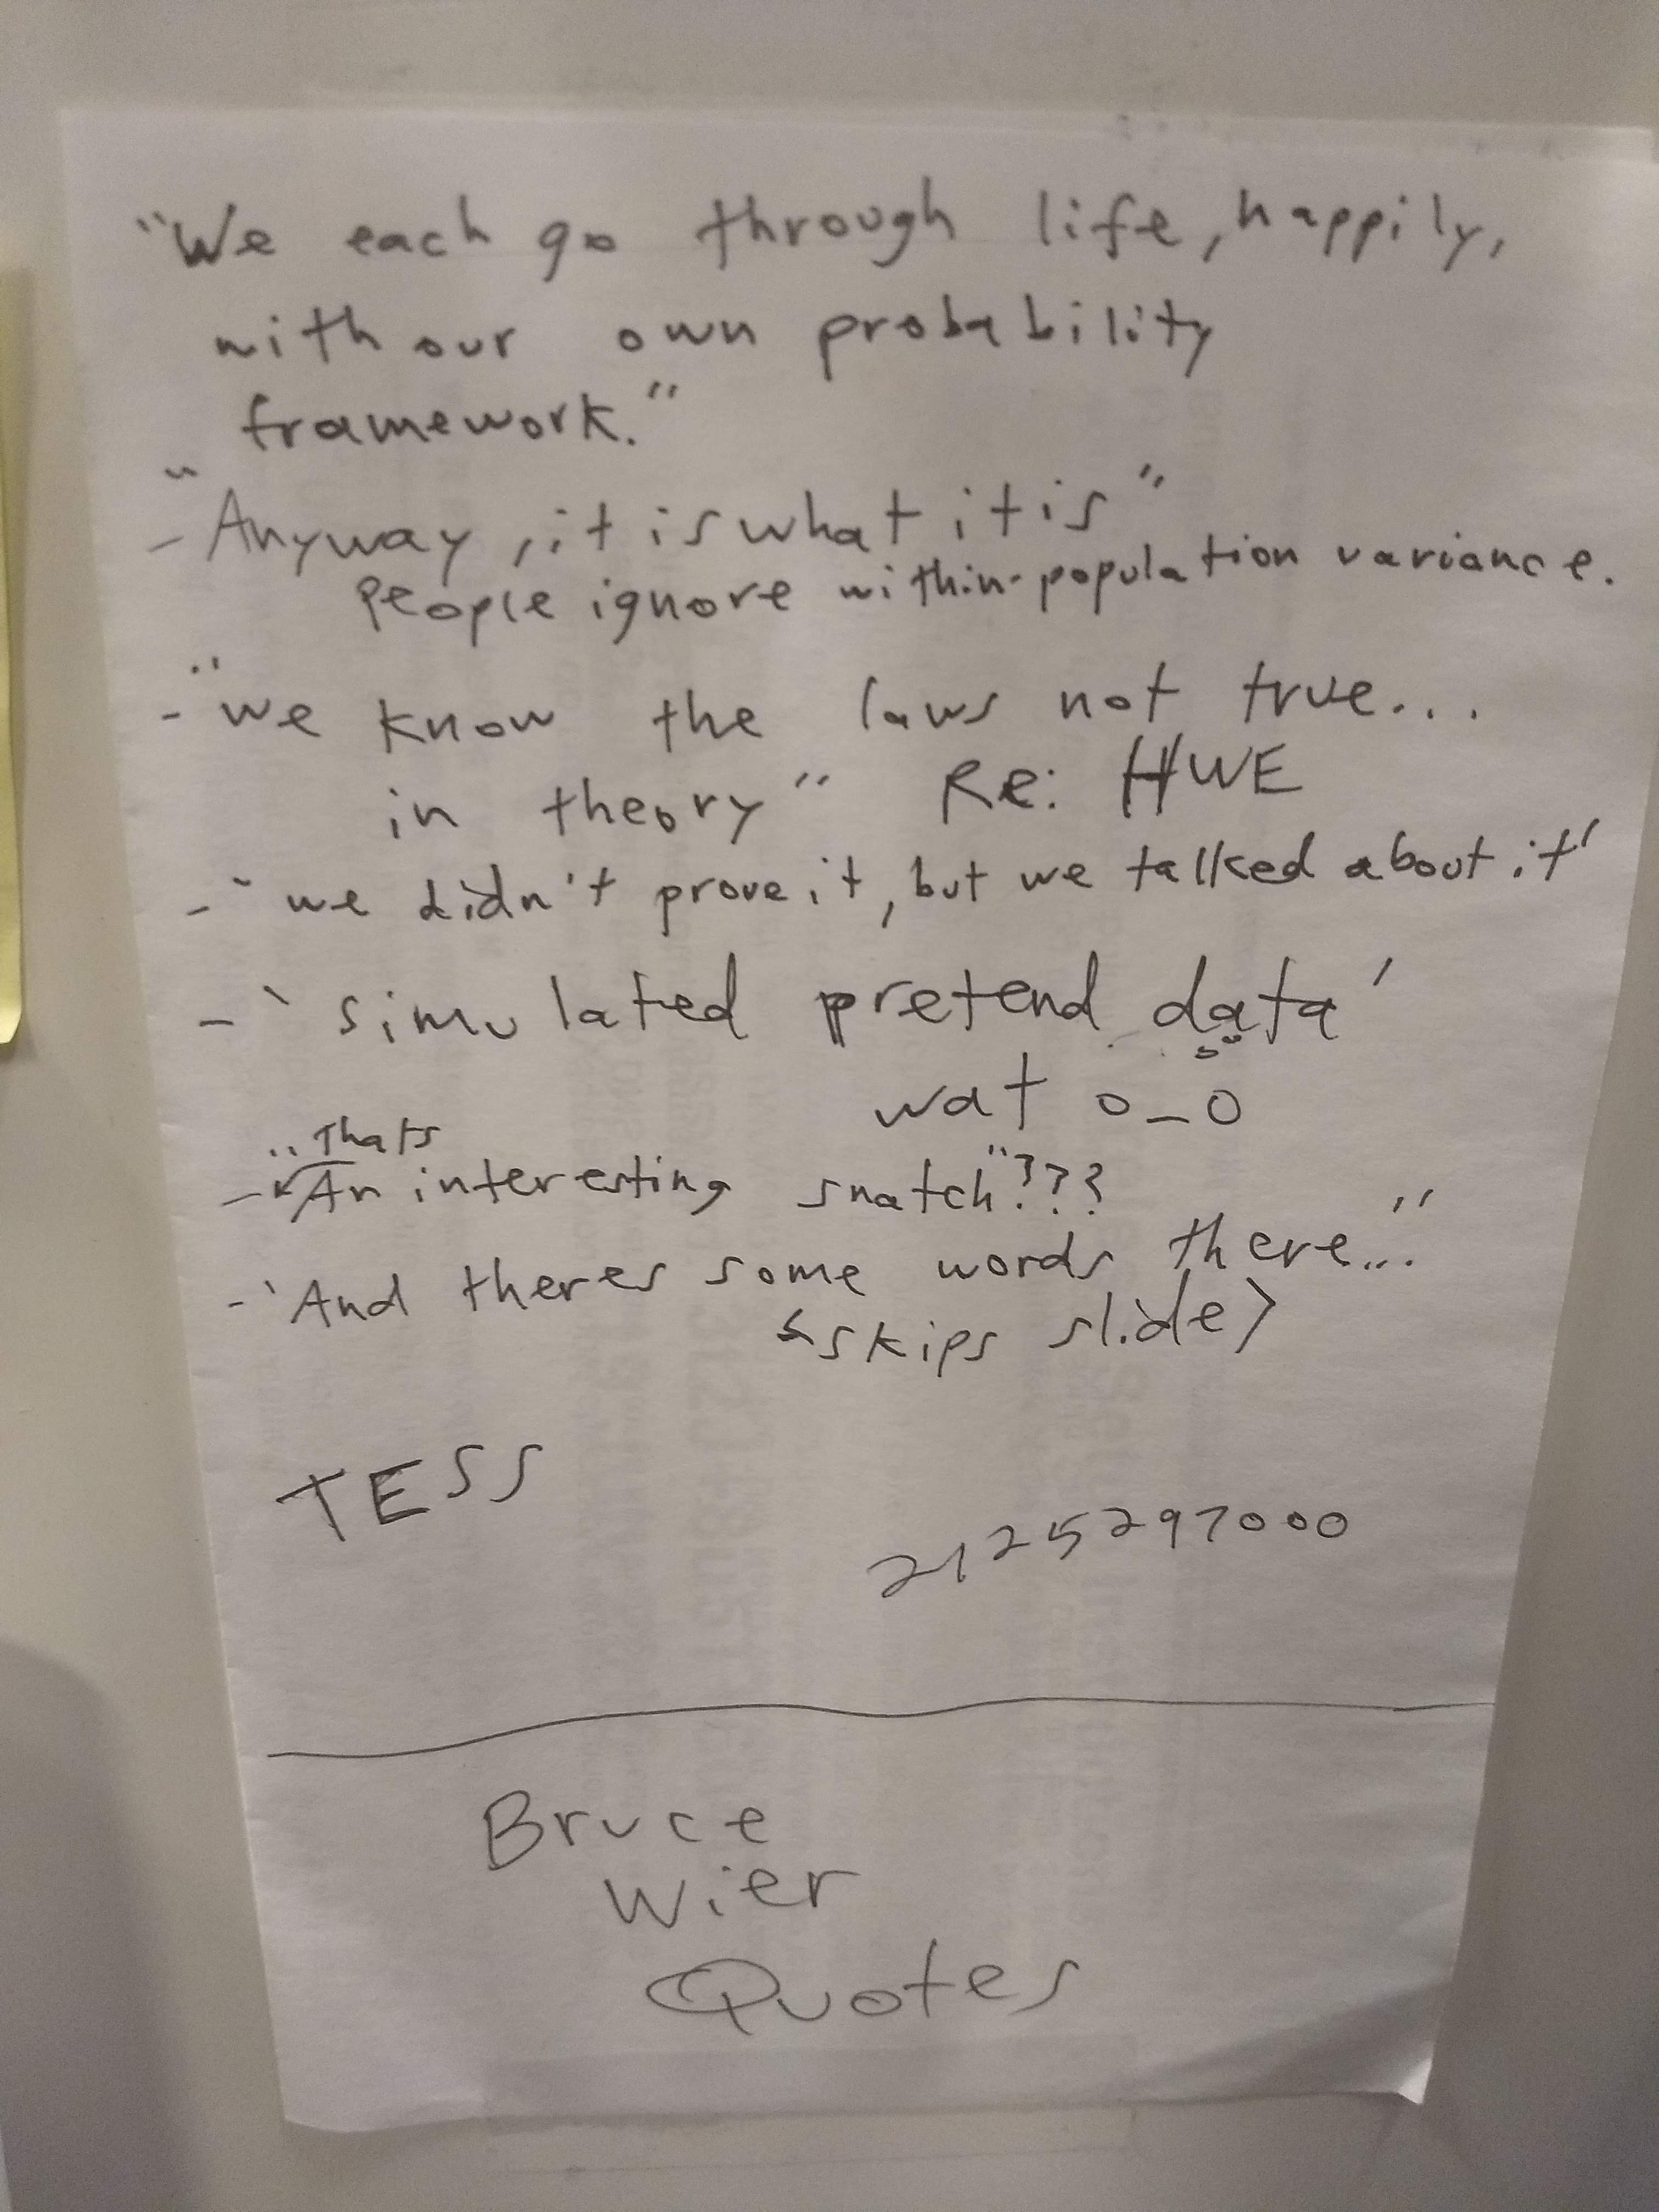 "We each go through life, happily,
with our own probability
framework."
- "Anyway, it is what it is"
People ignore within-population variance.
- "we know the laws not true...
in theory" Re: HWE
- 'we didn't prove it, but we talked about it'
- 'simulated pretend data'
wat o_O
"Thats
- An interesting snatch"???
- 'And theres some words there..."
<skips slide>
TESS
2125297000
Bruce
Wier
Quotes